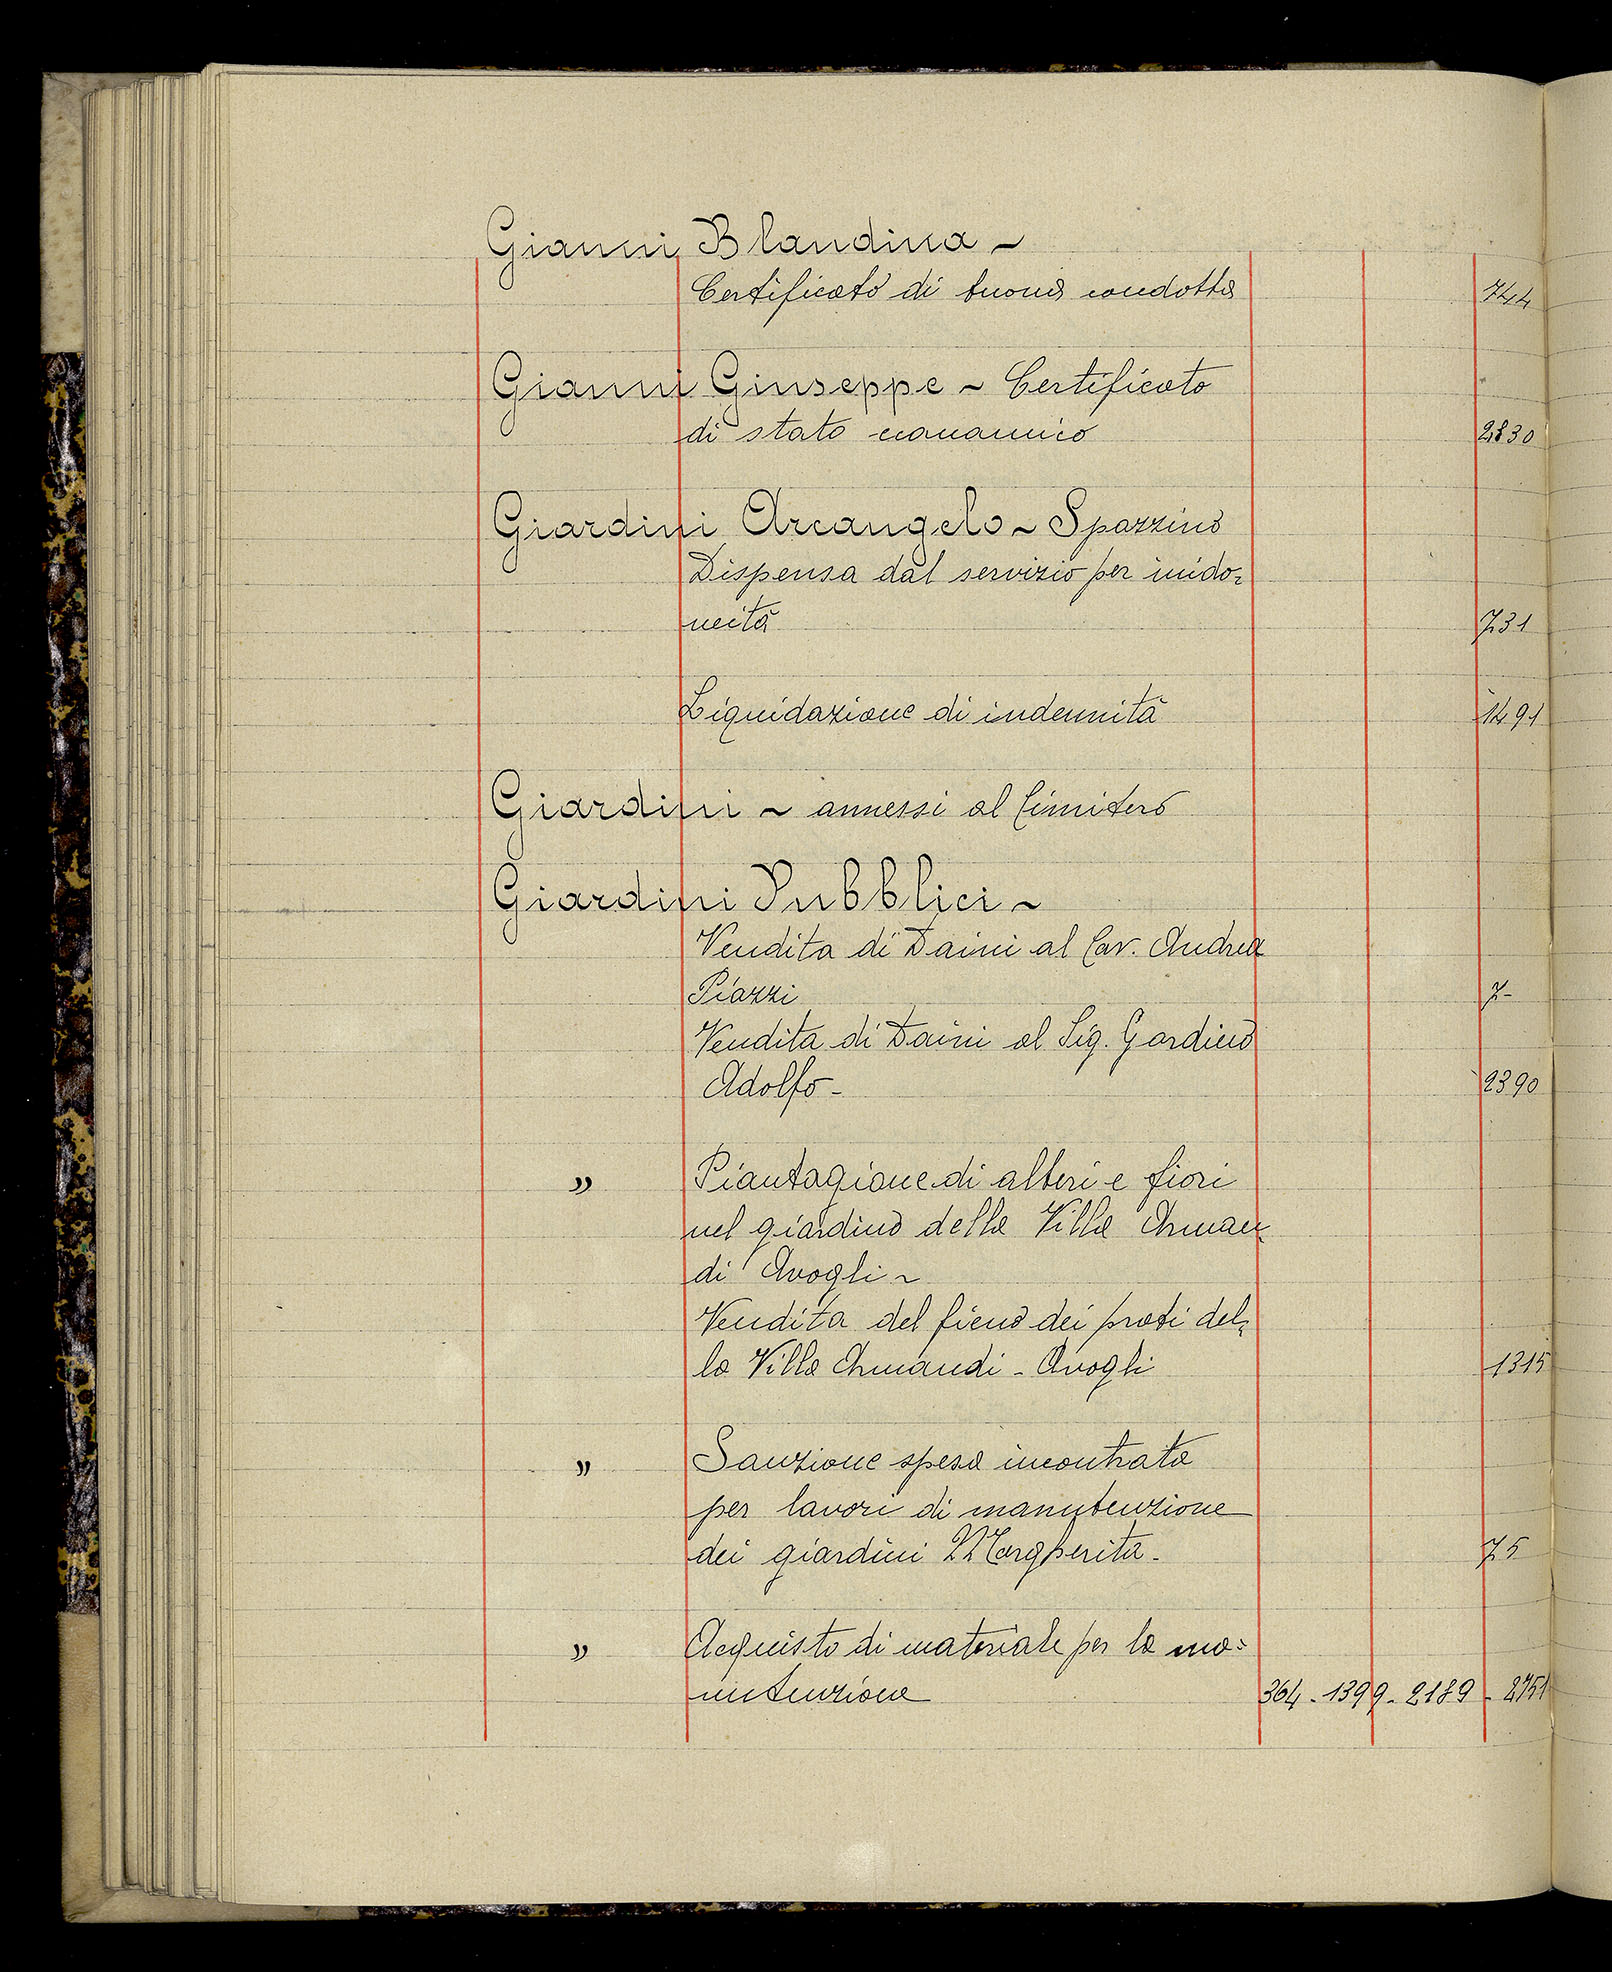 Gianni Blandina ~
Certificato di buona condotta 744
Gianni Giuseppe ~ Certificato
di stato economico 2830
Giardini Arcangelo ~ Spazzino
Dispensa dal servizio per inido=
neità 731
Liquidazione di indennità 1491
Giardini ~ annessi al Cimitero
Giardini Pubblici ~
Vendita di Daini al Cav. Andrea
Piazzi 7-
Vendita di Daini al Sig. Gardino
Adolfo - 2390
" Piantagione di alberi e fiori
nel giardino della Villa Arman=
di Avogli ~
Vendita del fieno dei prati del=
la Villa Armandi - Avogli 1315
" Sanzione spesa incontrata
per lavori di manutenzione
dei giardini Margherita - 75
" Acquisto di materiale per la ma=
nutenzione 364 - 1399 - 2189 - 2751